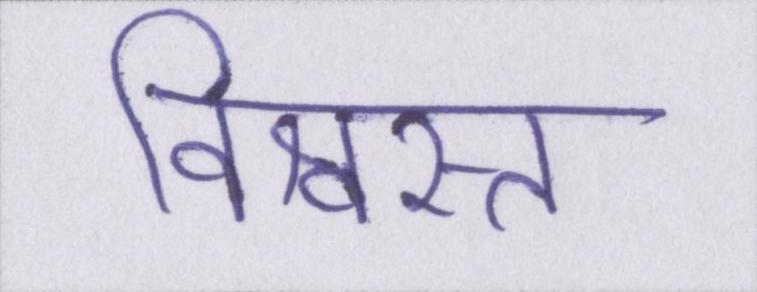 विश्वस्त